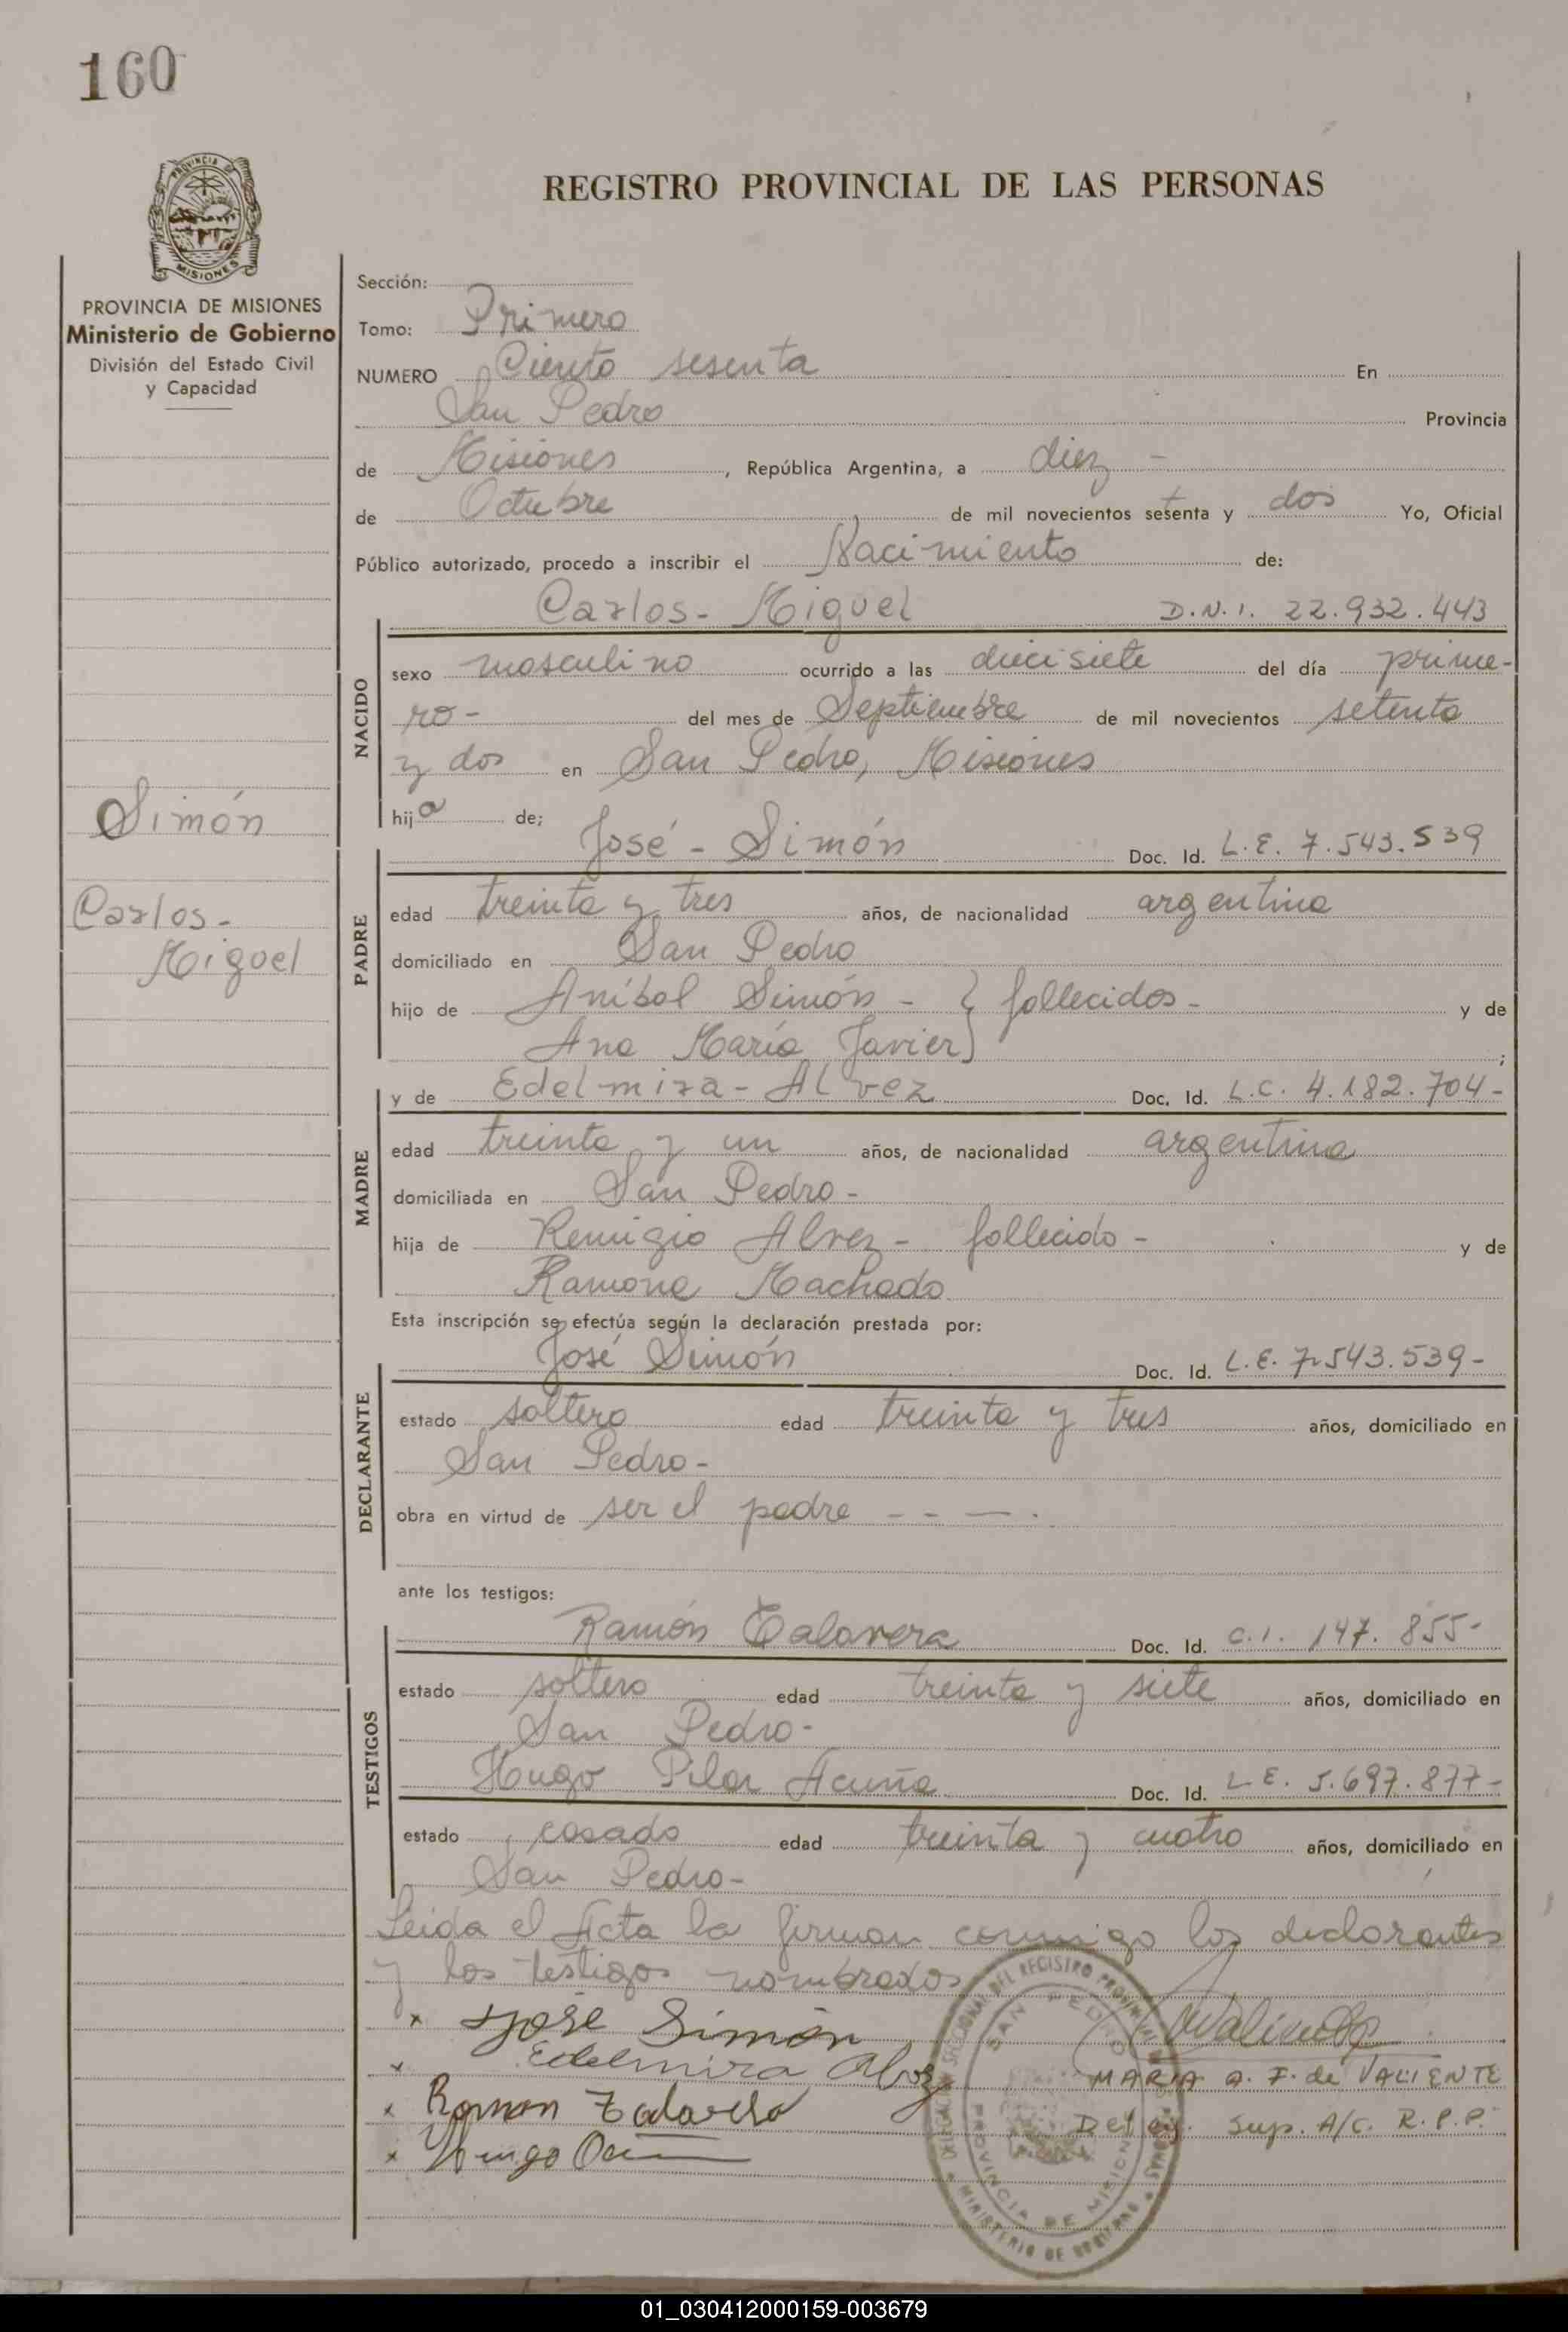 160
REGISTRO PROVINCIAL DE LAS PERSONAS
PROVINCIA DE MISIONES
PROVINCIA DE MISIONES
Ministerio de Gobierno
División del Estado Civil
y Capacidad
Simón
Carlos-
Miguel
Sección:
Tomo: Primero
NUMERO Ciento sesenta En
San Pedro Provincia
de Misiones, República Argentina, a diez -
de Octubre de mil novecientos setenta y dos Yo, Oficial
Público autorizado, procedo a inscribir el Nacimiento de:
Carlos- Miguel D.N.I. 22.932.443
NACIDO
sexo masculino ocurrido a las diecisiete del día prime-
ro- del mes de Septiembre de mil novecientos setenta
y dos en San Pedro, Misiones
hijo de;
José - Simón Doc. Id. L.E. 7.543.539
PADRE
edad treinta y tres años, de nacionalidad argentina
domiciliado en San Pedro
hijo de Aníbal Simón - } fallecidos - y de
Ana María Javier } ;
y de Edelmira - Alvez Doc. Id. L.C. 4.182.704-
MADRE
edad treinta y un años, de nacionalidad argentina
domiciliada en San Pedro -
hija de Remigio Alvez - fallecido - y de
Ramona Machado
Esta inscripción se efectúa según la declaración prestada por:
José Simón Doc. Id. L.E. 7.543.539-
DECLARANTE
estado soltero edad treinta y tres años, domiciliado en
San Pedro-
obra en virtud de ser el padre - - — .
ante los testigos:
Ramón Talavera Doc. Id. C.I. 147.855-
TESTIGOS
estado soltero edad treinta y siete años, domiciliado en
San Pedro-
Hugo Pilar Acuña Doc. Id. L.E. 5.697.877-
estado casado edad treinta y cuatro años, domiciliado en
San Pedro-
Leida el Acta la firman conmigo los declarantes
y los testigos nombrados
x José Simón
x Edelmira Alvez
MARIA A. F. de VALIENTE
x Ramon Talavera
Deleg. Sup. A/C. R.P.P.
x Hugo
DELEGACION SECCIONAL DEL REGISTRO PROVINCIAL DE LAS PERSONAS
SAN PEDRO
PROVINCIA DE MISIONES
MINISTERIO DE GOBIERNO
01_030412000159-003679